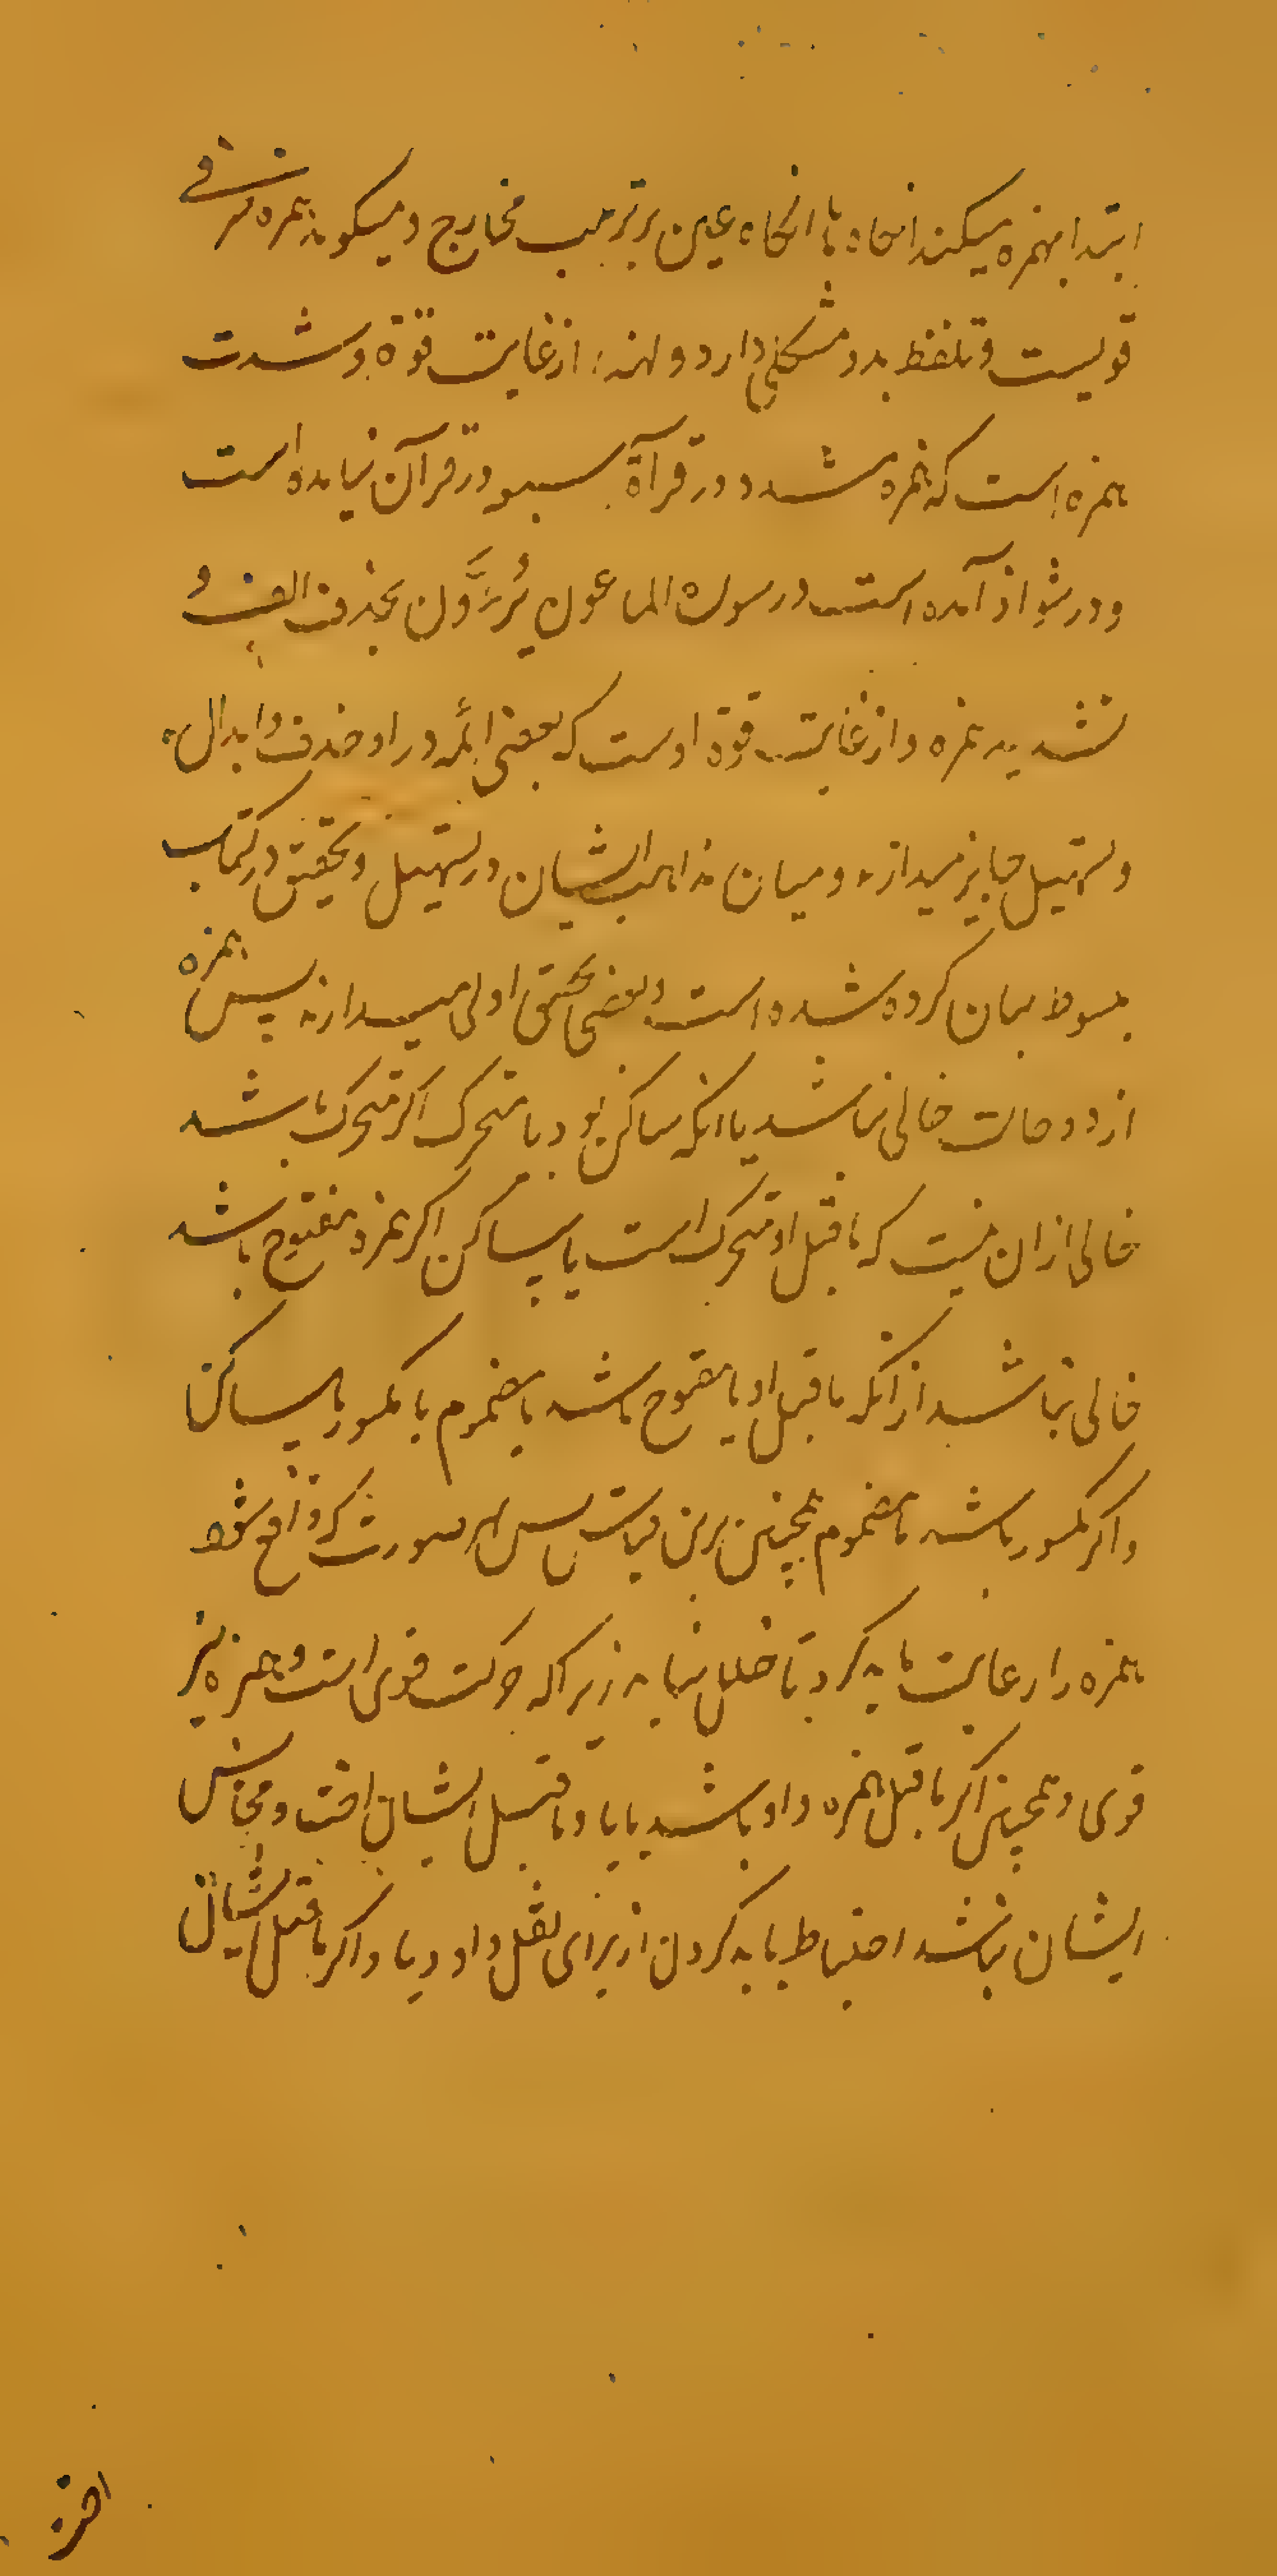 ابتدا بهمزه میکنند انکاه با انکاه عین بر ترتیب مخارج و میکویند همزه حرفی
قویست و تلفظ بدو مشکلی دارد و لهذا از غایت قوة و شدت
همزه است که همزه مشدد در قرآة سبعه در قرآن نیامده است
و در شواذ آمده است در سوره الماعون یُرَءَّوْن بحذف الف و
تشدید همزه و از غایت قوة اوست که بعضی ائمه در او حذف و ابدال
و تسهیل جایز میدارند و میان مذاهب ایشان در تسهیل و تحقیق در کتاب
مبسوط بیان کرده شده است و بعضی تحقیق اولی میدارند پس همزه
از دو حالت خالی نباشد یا انکه ساکن بود یا متحرک اکر متحرک باشد
خالی ازان نیست که ماقبل او متحرک است یا ساکن اکر همزه مفتوح باشد
خالی نباشد از انکه ماقبل او یا مفتوح باشد یا مضموم یا مکسور یا ساکن
و اکر مکسور باشد یا مضموم همچنین برین قیاس پس هر صورت که واقع شود
همزه را رعایت باید کرد تا خلل نیاید زیرا که حرکت قوی است و همزه نیز
قوی و همچنین اکر ماقبل همزه واو باشد یا یا و ماقبل ایشان افتد و مجانس
ایشان نباشد احتیاط باید کردن از برای ثقل واو و یا و اکر ماقبل ایشان